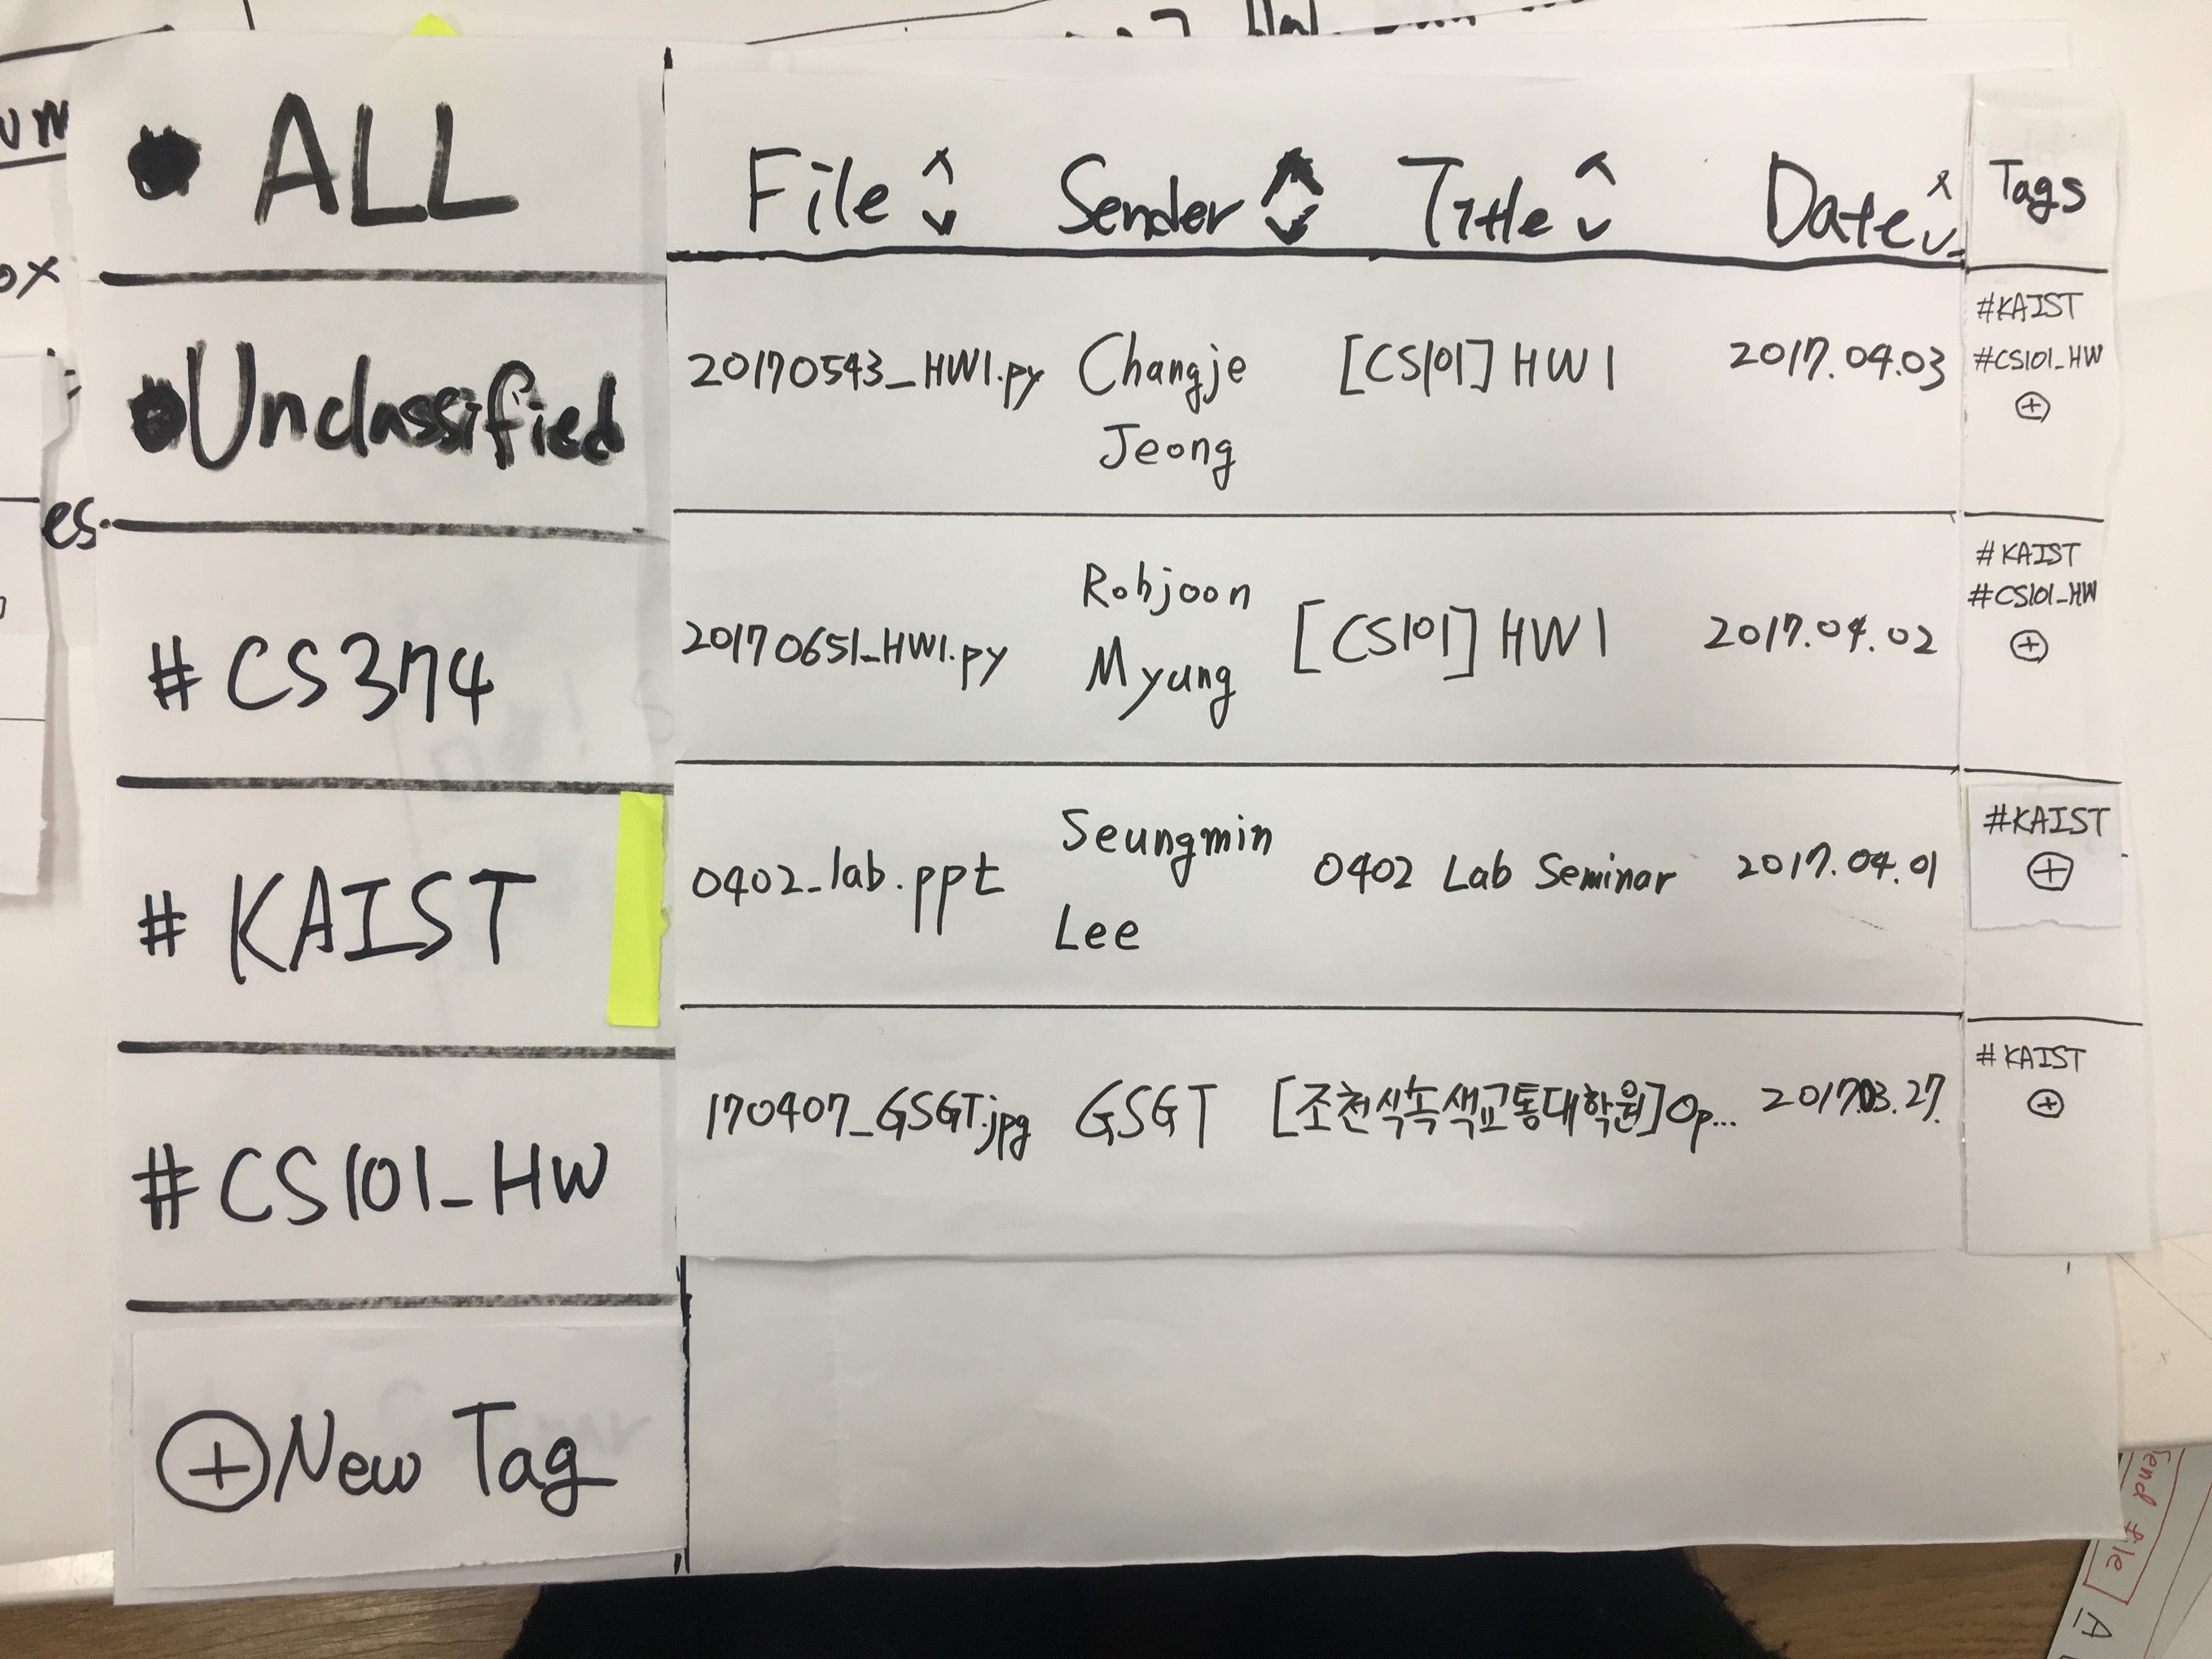 ALL
Unclassified
#CS374
#KAIST
#CS101_HW
+ New Tag
File Sender Title Date Tags
20170543_HW1.py Changje Jeong [CS101] HW1 2017.04.03
#KAIST
#CS101_HW
+
20170651_HW1.py Rohjoon Myung [CS101] HW1 2017.04.02
#KAIST
#CS101_HW
+
0402_lab.ppt Seungmin Lee 0402 Lab Seminar 2017.04.01
#KAIST
+
170407_GSGT.jpg GSGT [조천식녹색교통대학원]Op... 2017.03.27.
#KAIST
+
es.
ox
Send file
A